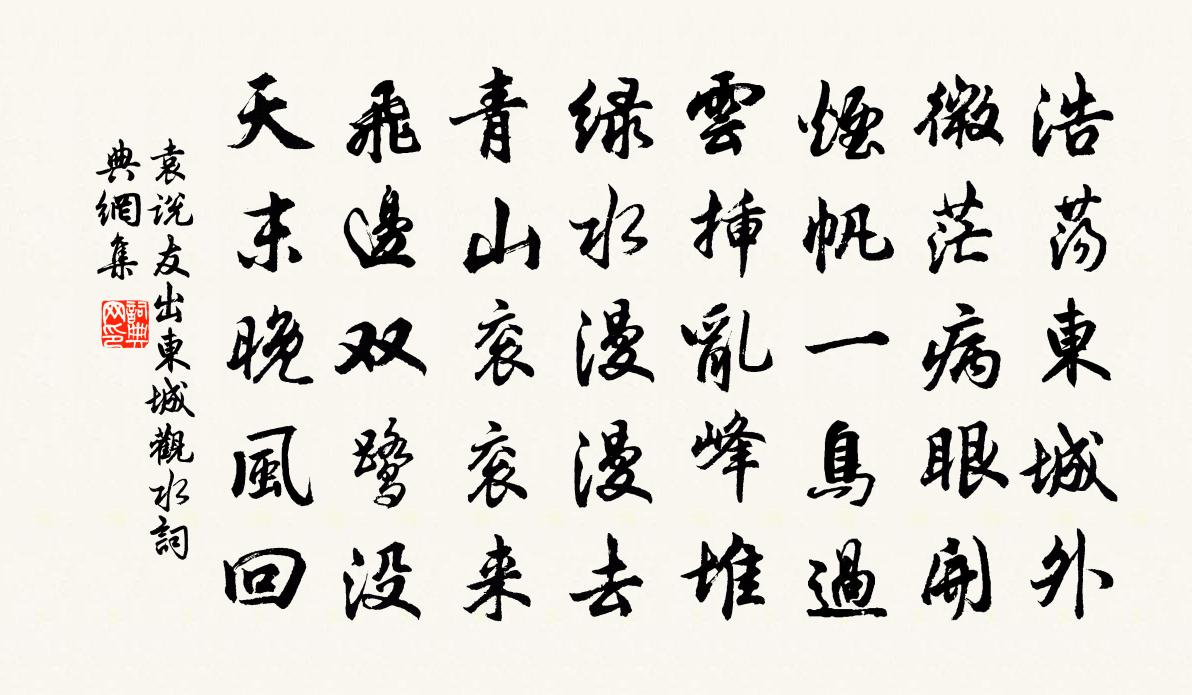 浩蕩東城外
微茫病眼開
煙帆一鳥過
雲挿亂峰堆
緑水漫漫去
青山衮衮来
飛邊双鹭没
天末晚風回
袁说友出東城觀水詞
典網集
詞典
网印